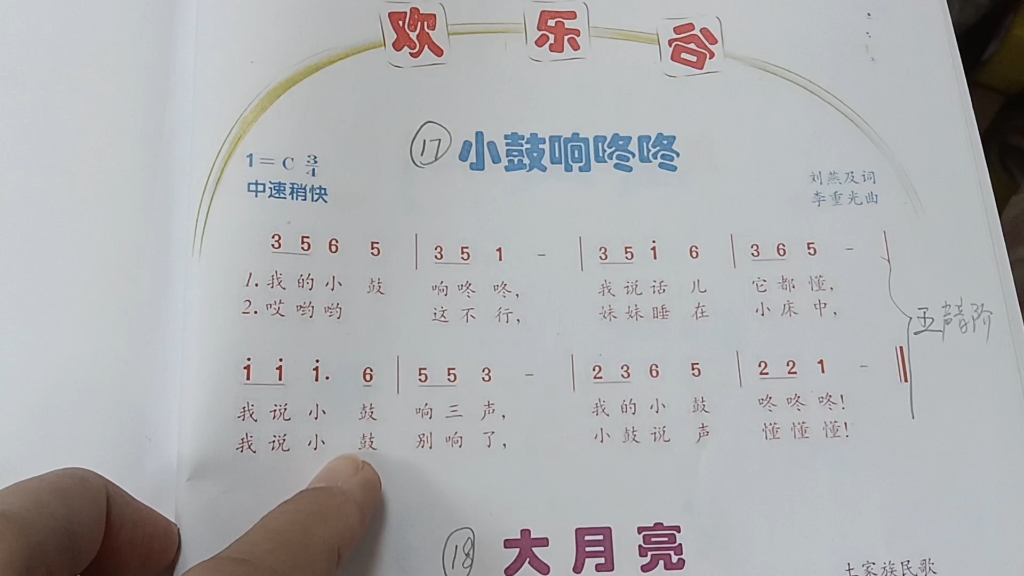 欢 乐 谷
⑰ 小鼓响咚咚
1=C 3/4
中速稍快
刘燕及词
李重光曲
3 5 6 5 | 3 5 1 - | 3 5 i 6 | 3 6 5 - |
1. 我 的 小 鼓 响 咚 咚, 我 说 话 儿 它 都 懂,
2. 哎 哟 哟 这 不 行, 妹 妹 睡 在 小 床 中,
五声音阶
i i i· 6 | 5 5 3 - | 2 3 6 5 | 2 2 1 - ‖
我 说 小 鼓 响 三 声, 我 的 小 鼓 咚 咚 咚!
我 说 小 鼓 别 响 了, 小 鼓 说 声 懂 懂 懂!
⑱ 大 月 亮
土家族民歌